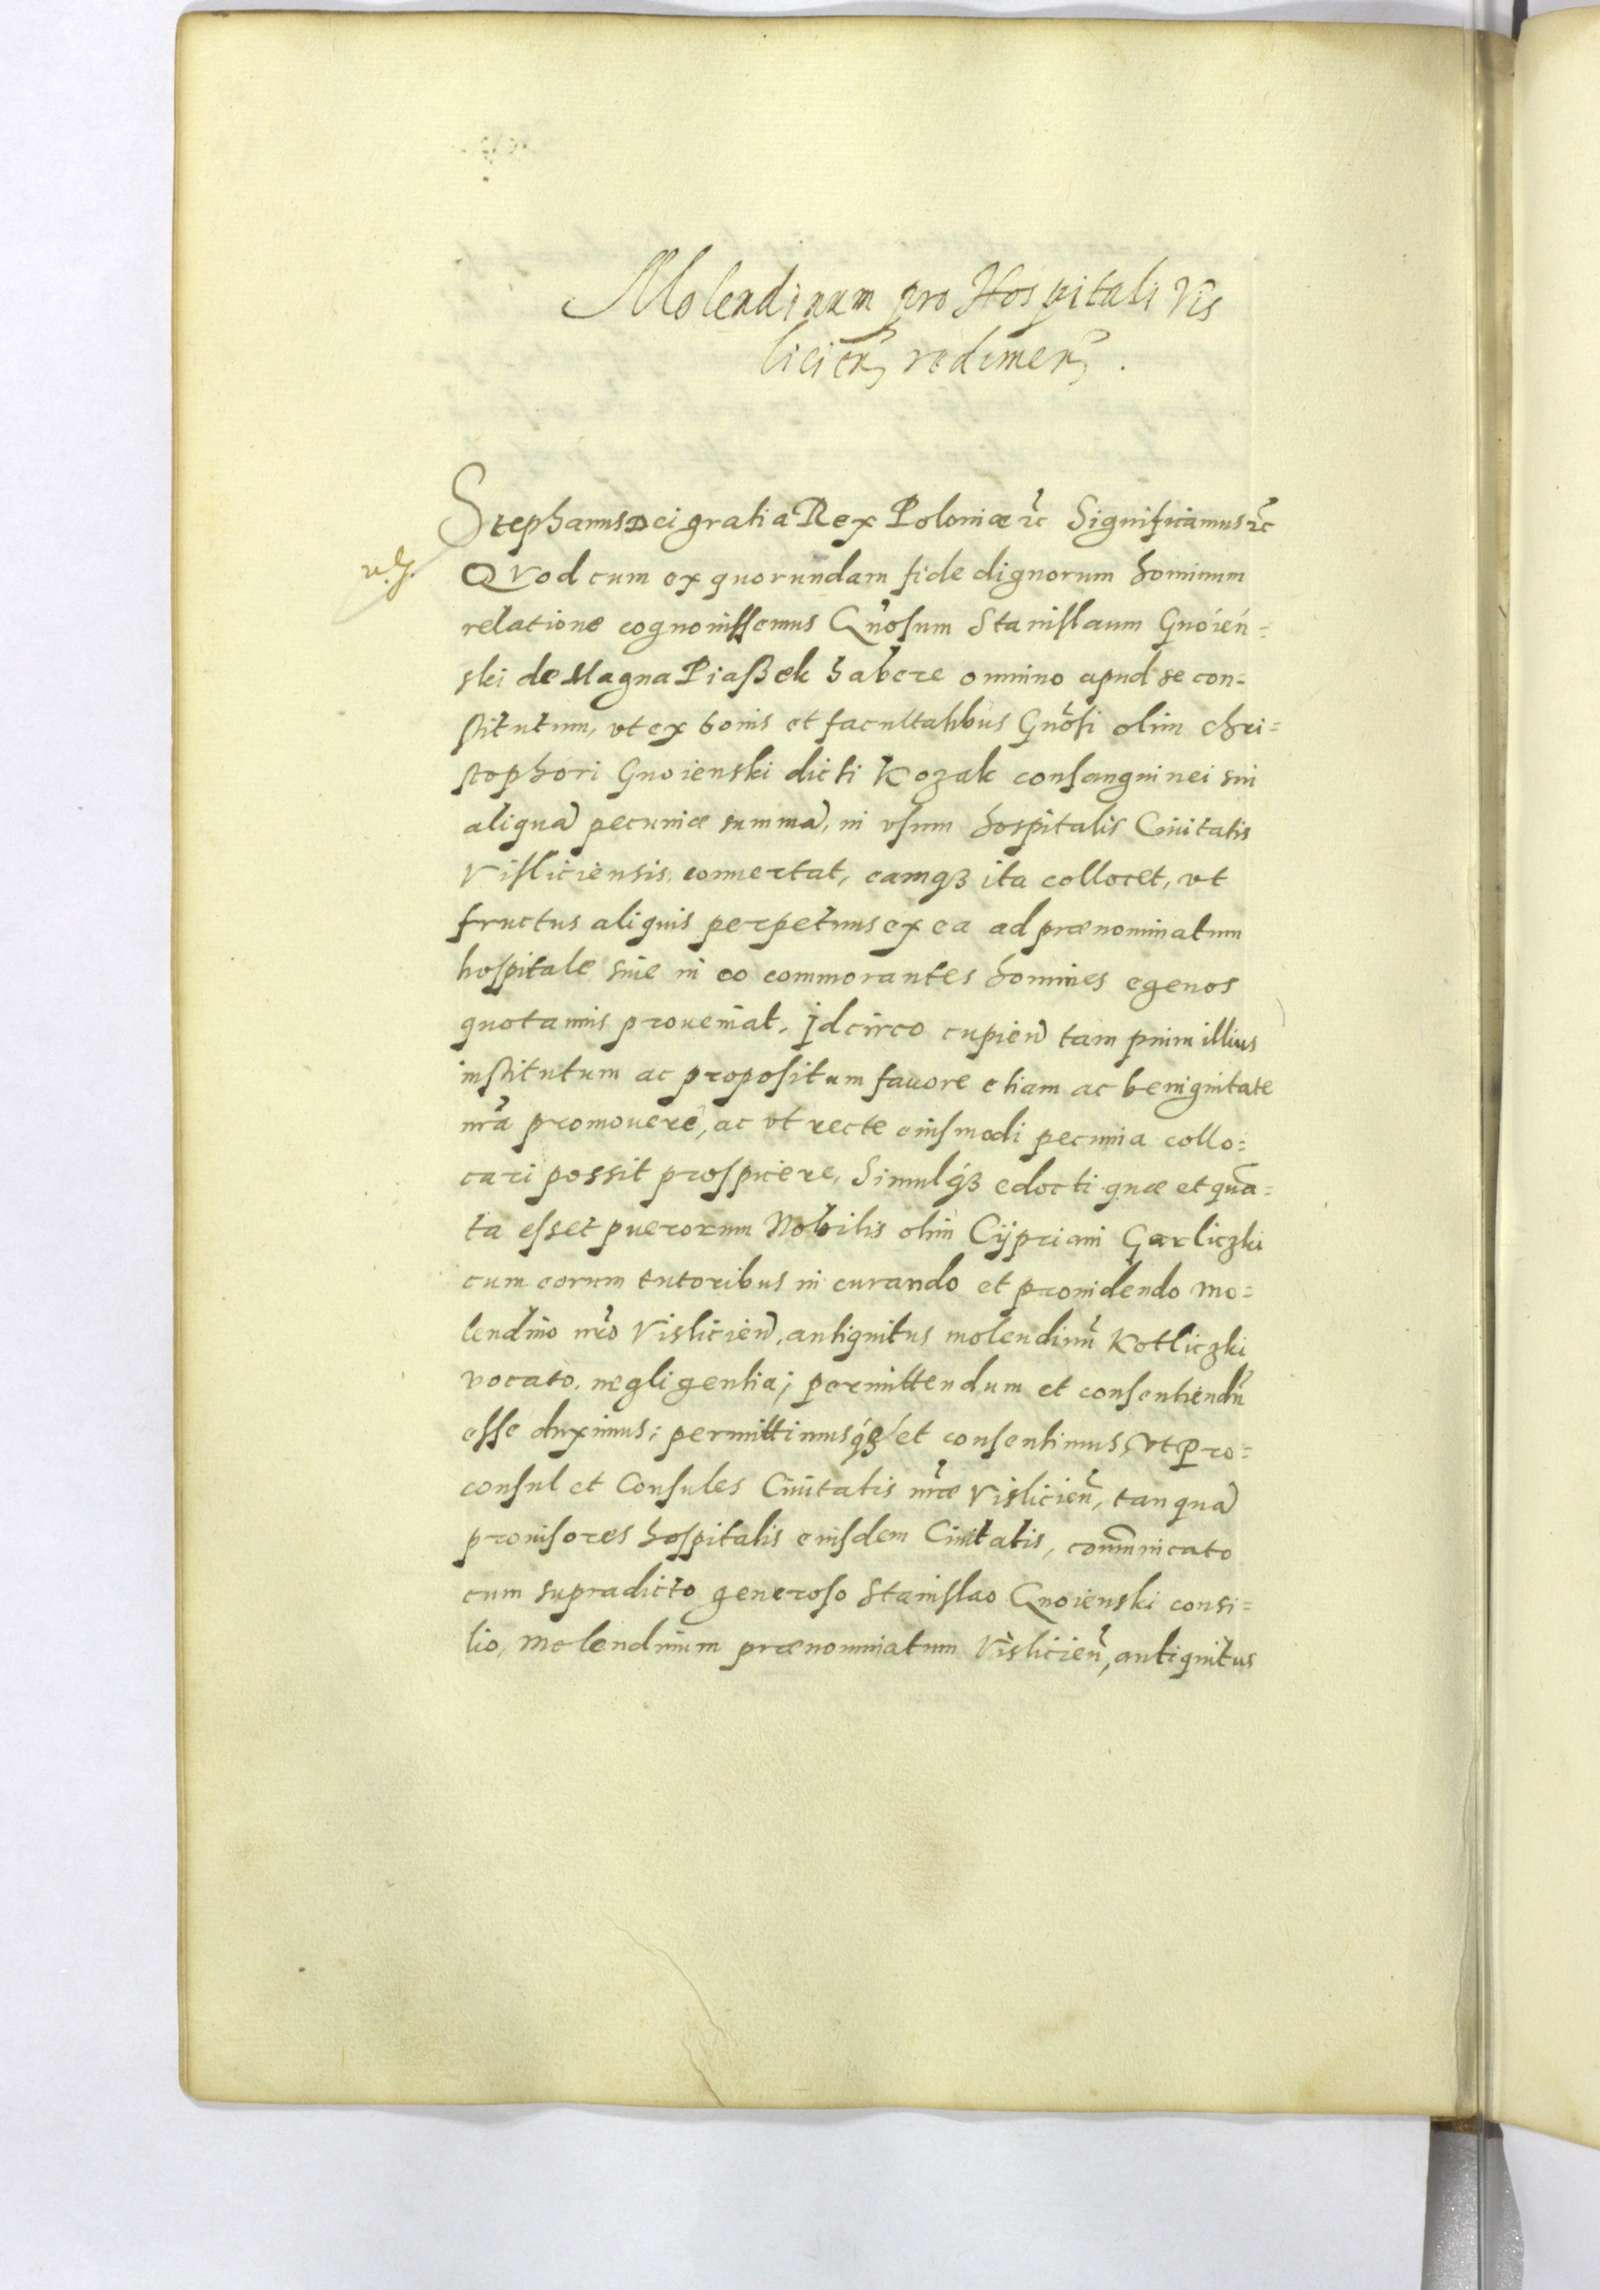 Molendinum pro Hospitali Vis
licień redimeń.
Stephanus Dei gratia Rex Poloniæ ꝛc Significamus ꝛc
QVod cum ex quorundam fide dignorum hominum
relatione cognouissemus Gn̄osum Stanislaum Gnóień=
ski de Magna Piaßek habere omnino apud se con=
stitutum, vt ex bonis et facultatibus Gn̄osi olim Chri=
stophori Gnoienski dicti Kozak consanguinei sui
aliquā pecuniæ summā, in vsum hospitalis Ciuitatis
Visliciensis conuertat, eamqꝫ ita collocet, vt
fructus aliquis perpetuus ex ea ad prænominatum
hospitale siue in eo commorantes homines egenos
quotannis proueniat. Idcirco cupień tam pium illius
institutum ac propositum fauore etiam ac benignitate
nr̄a promouere, ac vt recte eiusmodi pecunia collo=
cari possit prospicere, Simulqꝫ edocti quæ et quā=
ta esset puerorum Nobilis olim Cÿpriani Garliczki
cum eorum tutoribus in curando et prouidendo mo=
lendino nr̄o Vislicień, antiquitus molendinū Kotliczki
vocato, negligentia; permittendum et consentiendū
esse duximus; permittimusqꝫ et consentimus, vt Pro=
consul et Consules Ciuitatis nr̄æ Vislicień, tanquā
prouisores hospitalis eiusdem Ciuitatis, com̄unicato
cum supradicto generoso Stanislao Gnoienski consi=
lio, molendinum prænominatum Vislicień, antiquitus